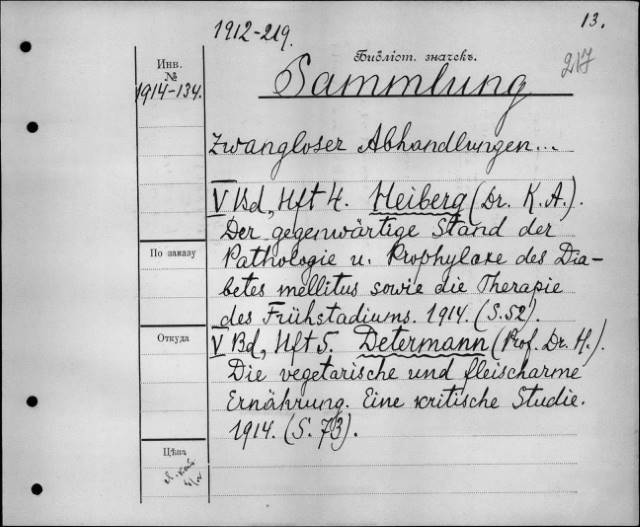 13.
1912-219.
Библіот. значекъ.
217
Инв.
№
1914-134.
Sammlung
Zwangloser Abhandlungen...
V Bd, Hft 4. Heiberg (Dr. K. A.).
Der gegenwärtige Stand der
По заказу
Pathologie u. Prophylaxe des Dia-
betes mellitus sowie die Therapie
des Frühstadiums. 1914. (S. 52).
Откуда
V Bd, Hft 5. Determann (Prof. Dr. H.).
Die vegetarische und fleischarme
Ernährung. Eine kritische Studie.
1914. (S. 73).
Цѣна